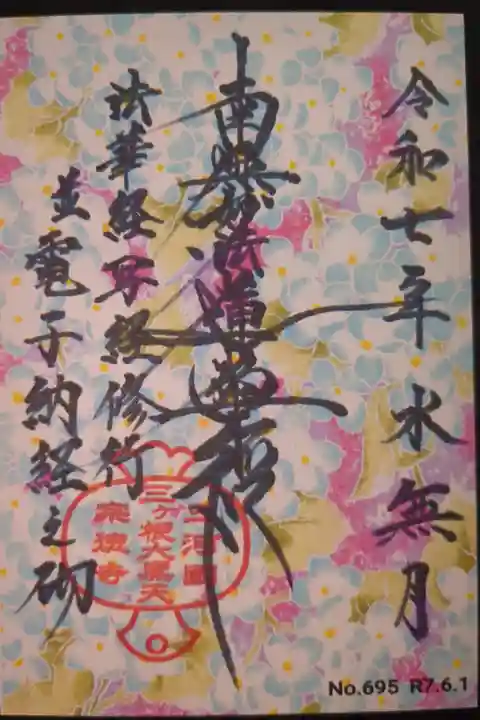 令和七年水無月
南無妙法蓮華経
法華経耳経修行
並電子納経之砌
三河國
三ヶ根大黒天
宗徳寺
No.695 R7.6.1